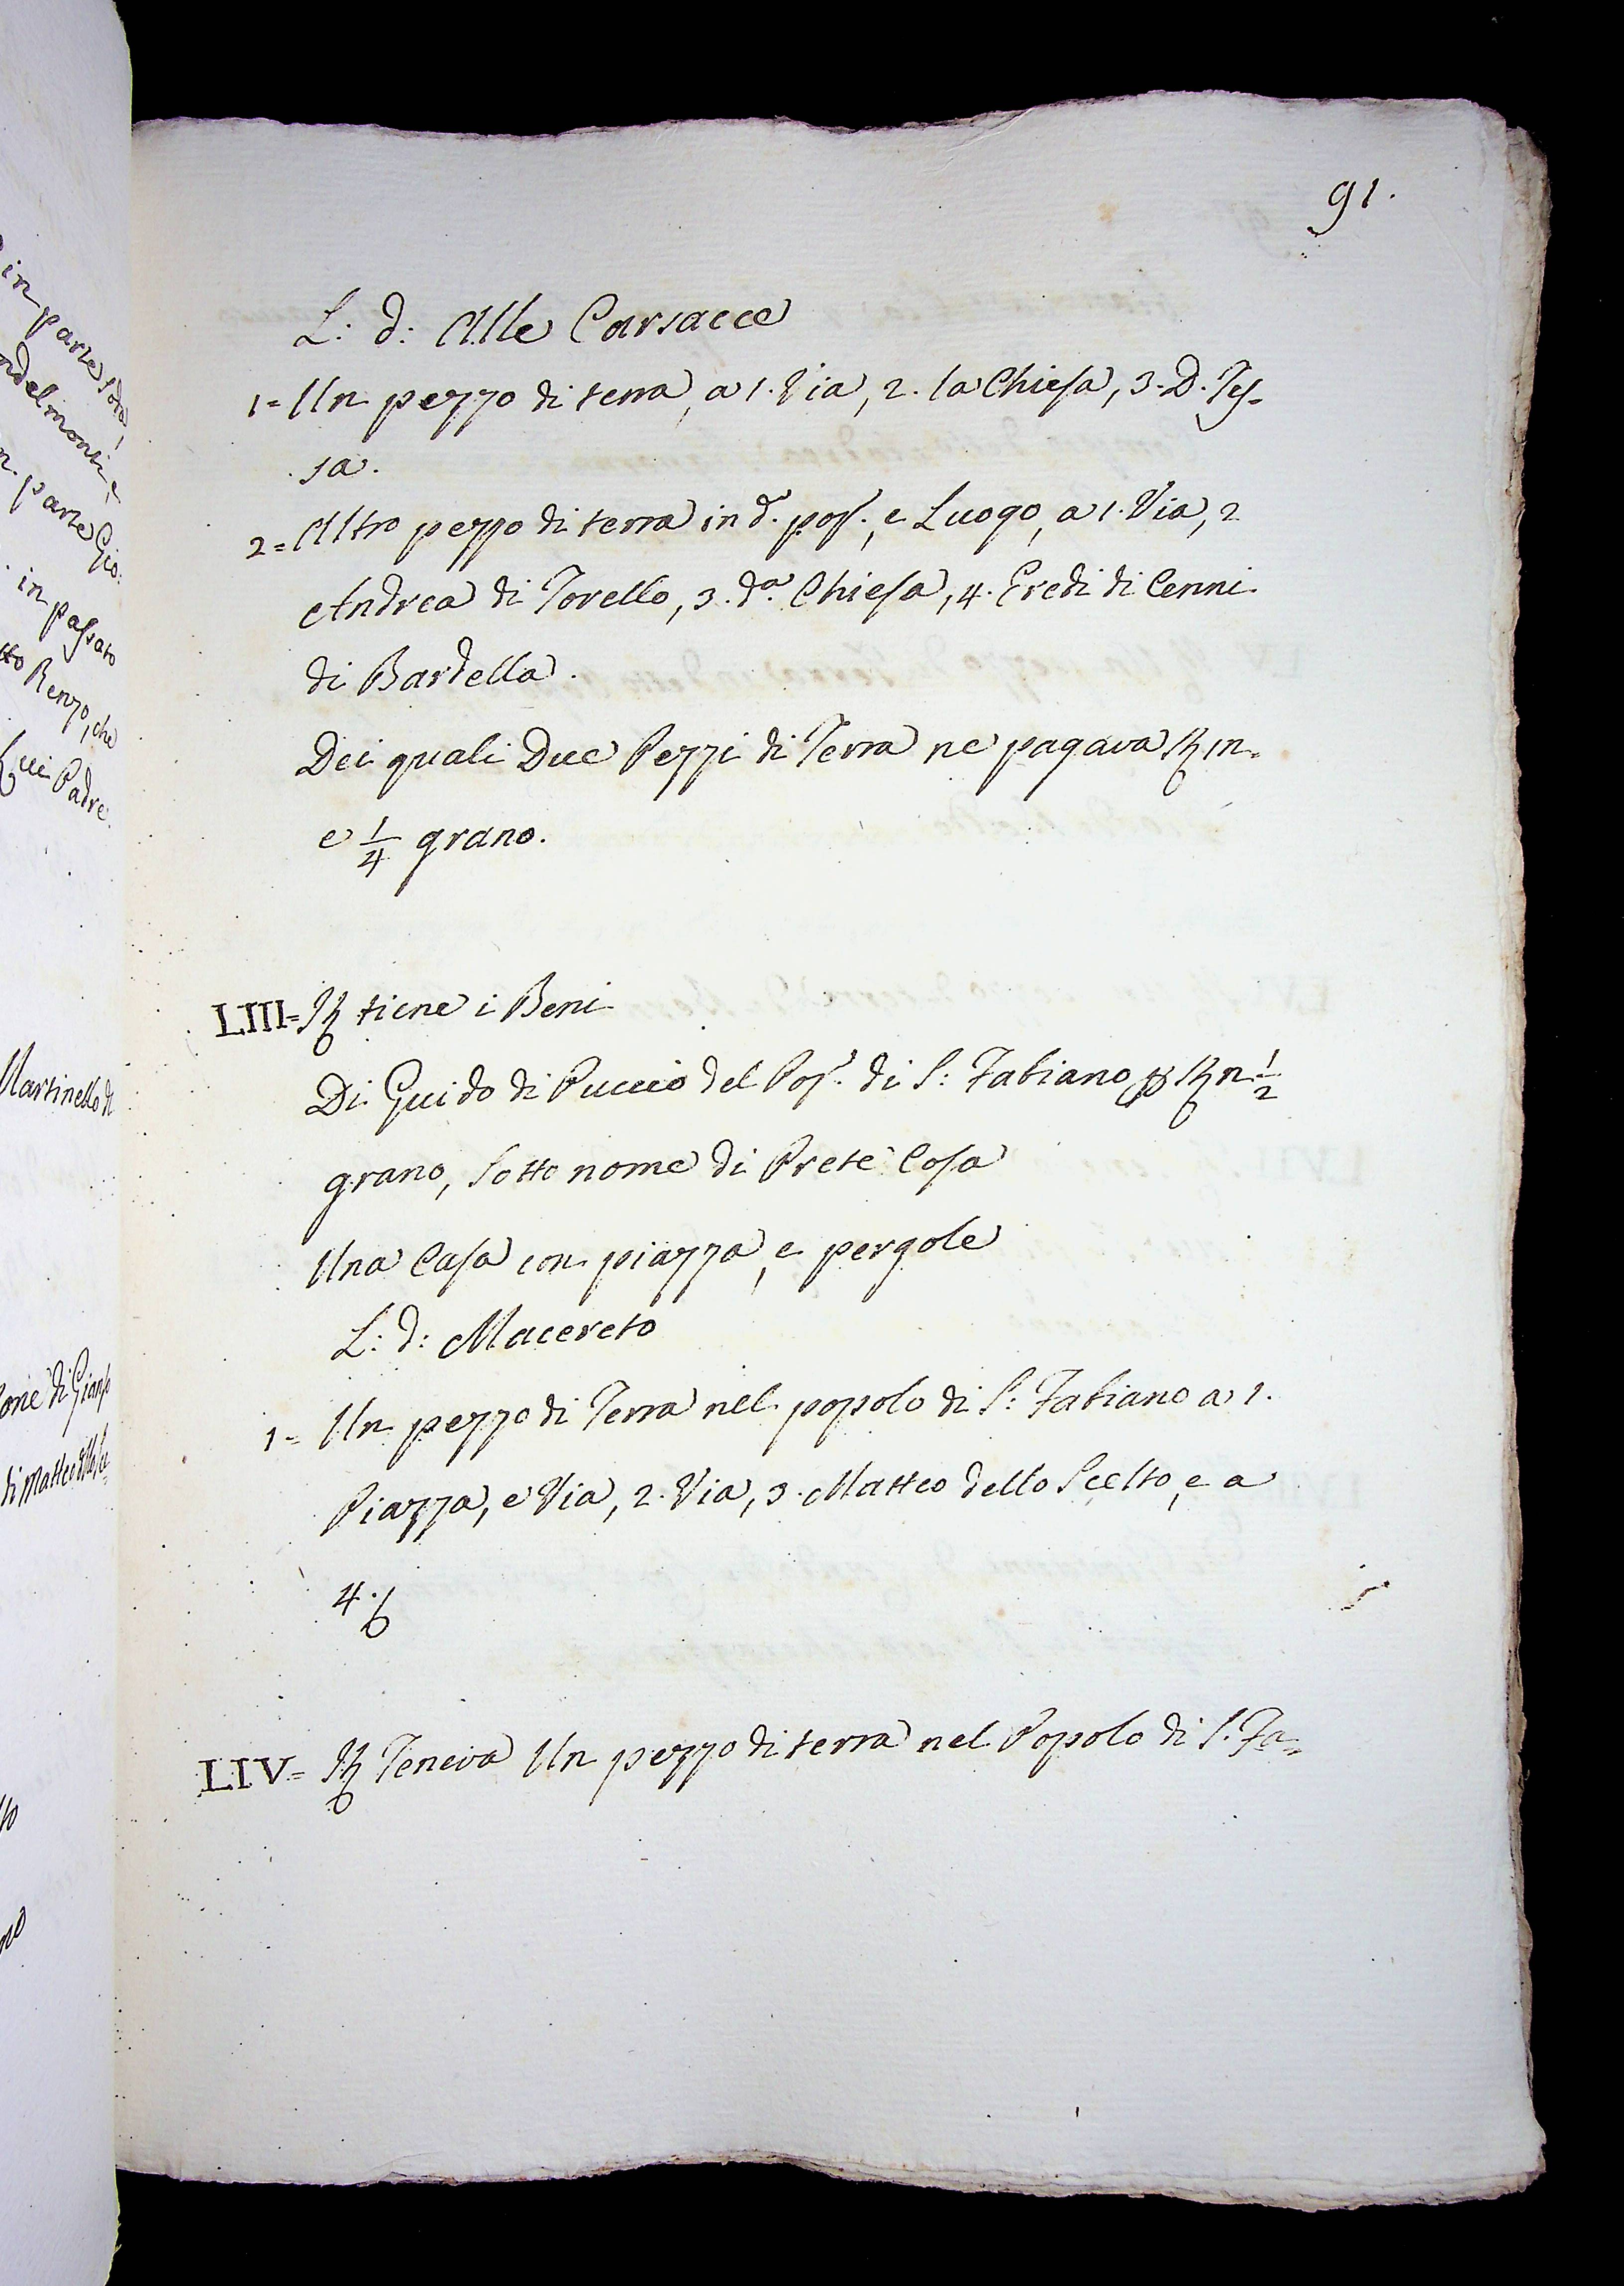 in parte Sodo,
ndelmonti, e
n. parte Gio:
in passato
tto Renzo, che
Padre.
Martinello di
di Matteo
91.
L: d: Alle Carsacce
1= Un pezzo di terra, a 1. Via, 2. la Chiesa, 3. D. Tes-
sa.
2= Altro pezzo di terra in d.º pop.º, e Luogo, a 1. Via, 2
Andrea di Torello, 3. d.ª Chiesa, 4. Eredi di Cenni
di Bardella.
Dei quali Due Pezzi di Terra ne pagava
e 1/4 grano.
LIII= tiene i Beni
Di Guido di Puccio del Pop.º di S: Fabiano 1/2
grano, Sotto nome di Prete Cosa
Una Casa con piazza, e pergole
L: d: Macereto
1= Un pezzo di Terra nel popolo di S: Fabiano a 1.
Piazza, e Via, 2. Via, 3. Matteo dello Scelto, e a
4.
LIV= Teneva Un pezzo di terra nel Popolo di S. Fa-